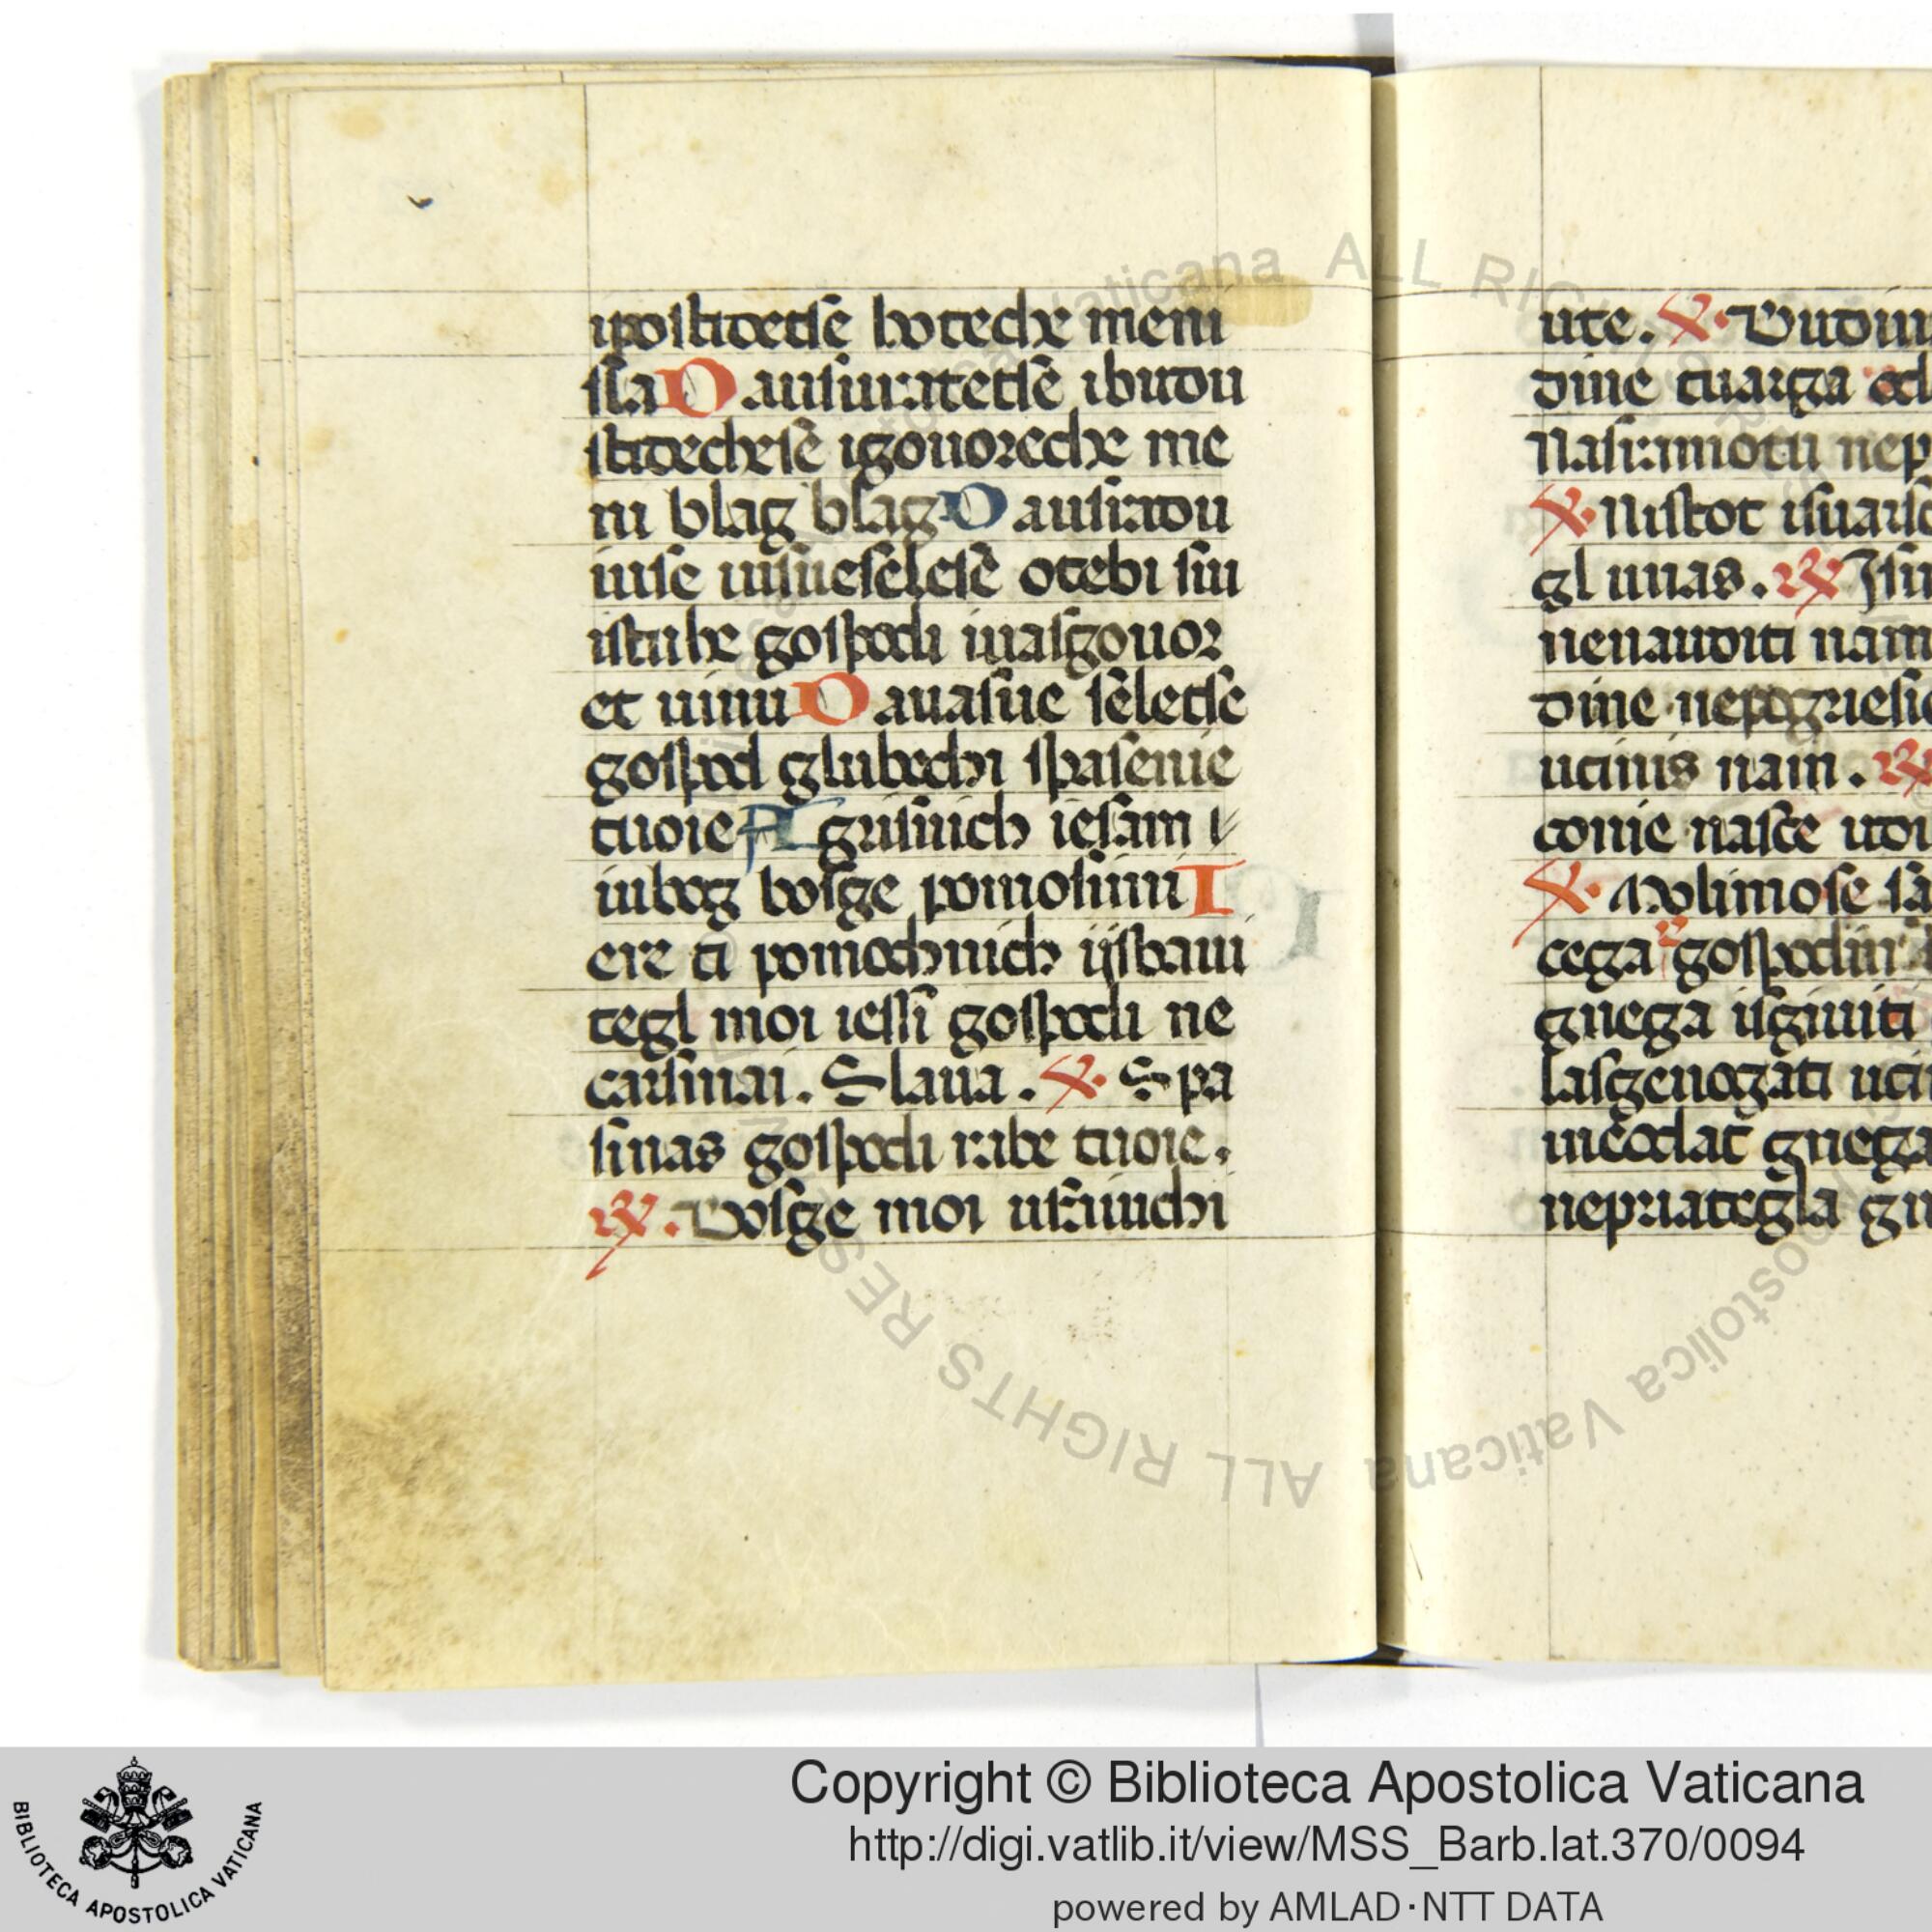 ipostidetse hoteche meni
sla D ausiuratetse ibudu
stidechese igouoreche me
ni blag blag D ausiradu
iuse uisueselese otebi siu
istube gospodi iuasgouor
et uinu D auasue seletse
gospod glubechi spasenie
tuoie A grisnich iesam i
iubog bosge pomosimi I
ere ti pomochnich iisbaui
tegl moi iessi gospodi ne
carsinai. Slaua. V. Spa
sinas gospodi rabe tuoie.
R. Bosge moi ufiuuchi
ute. V. Budin
dine tuarga od
Nasrimiotu nep
V. Nistot isuaisc
gl uuas. R Isu
nenauditi nam
dine nepogriesie
ucinis nam. R
conie nasce udi
V. Molimose sa
cega gospodin
gnega isgiuiti
lasgenogati uci
inecodat gnega
nepriategla gn
Biblioteca Apostolica Vaticana
ALL RIGHTS RESERVED
BIBLIOTECA APOSTOLICA VATICANA
Copyright © Biblioteca Apostolica Vaticana
http://digi.vatlib.it/view/MSS_Barb.lat.370/0094
powered by AMLAD·NTT DATA